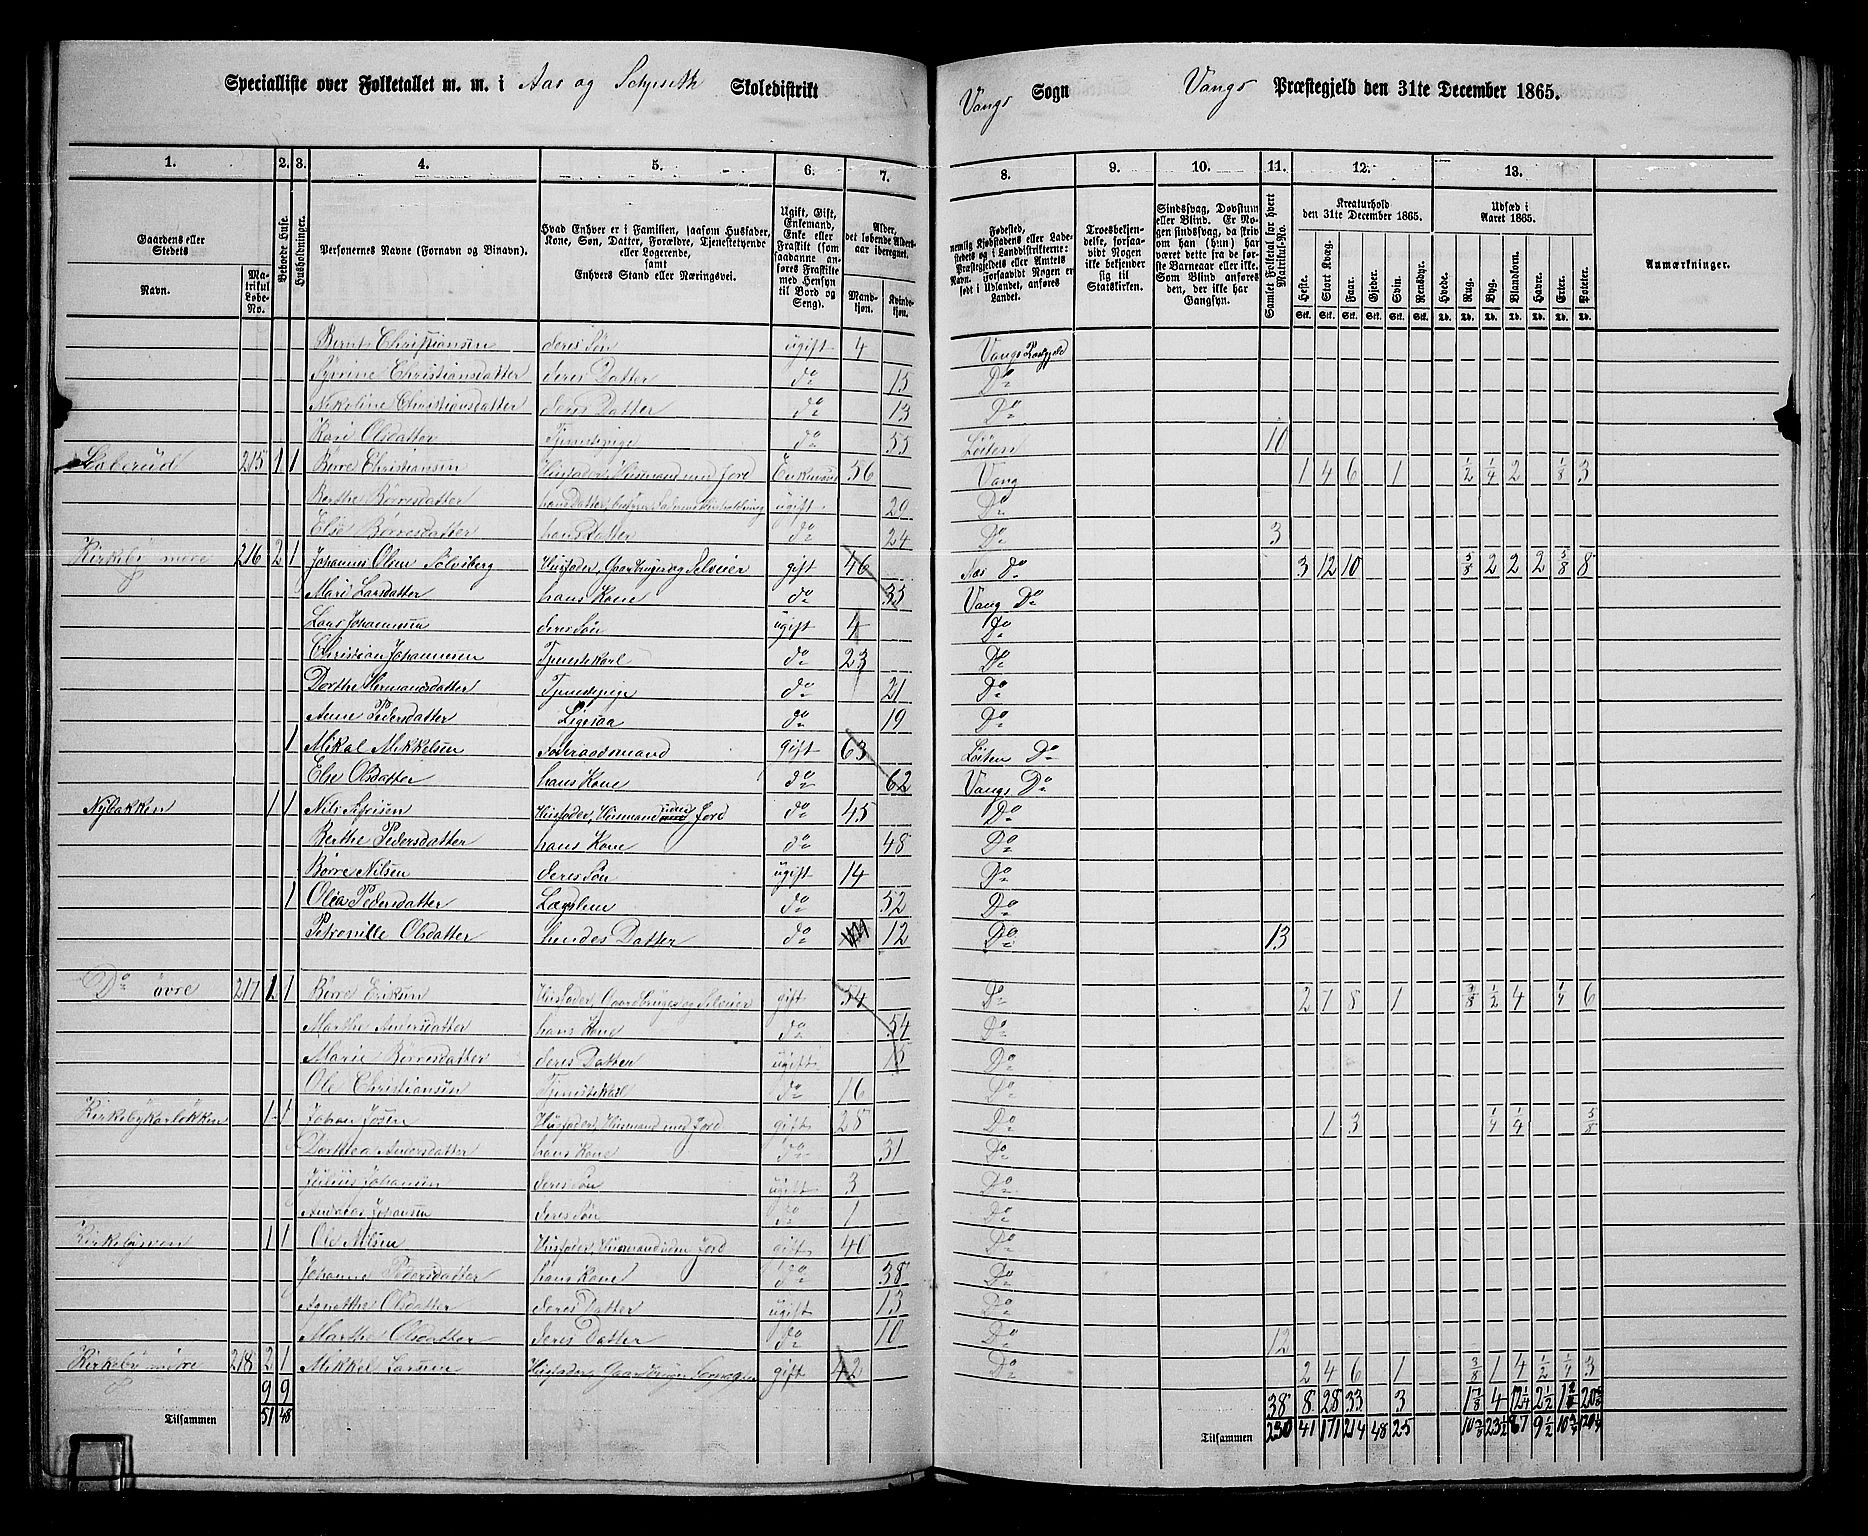 Specialliste over Folketallet m. m. i Aas og Schjeseth Skoledistrikt Vangs Sogn Vangs Præstegjeld den 31te December 1865.
1. 2. 3. 4. 5. 6. 7. 8. 9. 10. 11. 12. 13.
Gaardens eller Stedets
Navn.
Matrikul Løbe-No.
Beboede Huse.
Husholdninger.
Personernes Navne (Fornavn og Binavn).
Hvad Enhver er i Familien, saasom Husfader, Kone, Søn, Datter, Forældre, Tjenestetyende eller Logerende,
samt
Enhvers Stand eller Næringsvei.
Ugift, Gift, Enkemand, Enke eller Fraskilt (som saadanne anføres Fraskilte med Hensyn til Bord og Seng).
Alder, det løbende Aldersaar iberegnet.
Mandkjøn. Kvindekjøn.
Fødested, nemlig Kjøbstadens eller Ladestedets og i Landdistrikterne: Præstegjeldets eller Amtets Navn. Forsaavidt Nogen er født i Udlandet, anføres Landet.
Troesbekjendelse, forsaavidt Nogen ikke bekjender sig til Statskirken.
Sindssvag, Døvstum eller Blind. Er Nogen sindssvag, da skriv om han (hun) har været dette fra de første Barneaar eller ikke. Som Blind anføres den, der ikke har Gangsyn.
Samlet Folketal for hvert Matrikul-No.
Kreaturhold den 31te December 1865.
Heste. Stort Kvæg. Faar. Gjeder. Svin. Rensdyr.
Stk. Stk. Stk. Stk. Stk. Stk.
Udsæd i Aaret 1865.
Hvede. Rug. Byg. Blandkorn. Havre. Erter. Poteter.
Td. Td. Td. Td. Td. Td. Td.
Anmærkninger.
Bernt Christiansen deres Søn ugift 4 Vangs Præstgjeld
Christiansdatter deres Datter do 15 Do
Nikoline Christiansdatter deres Datter do 13 Do
Kari Olsdatter Tjenestepige do 55 Løiten 10
215 1 1 Børre Christiansen Husfader, Husmand med Jord Enkemand 56 Vang 1 4 6 1 1/2 1/4 2 1/8 3
Berthe Børresdatter hans Datter ugift 29 Do
Else Børresdatter hans Datter do 24 Do 3
Kirkeby 216 2 1 Johannes Olsen Solviberg Husfader, Gaardbruger og Selveier gift 46 Næs do 3 12 10 5/8 2 2 2 5/8 8
Mari Larsdatter hans Kone do 35 Vang Do
Lars Johannesen deres Søn ugift 4 Do
Christian Johannesen Tjenestekarl do 23 Do
Dorthe Hermansdatter Tjenestepige do 21 Do
Anne Pedersdatter Ligesaa do 19 Do
1 Mikal Mikkelsen Föderaadsmand gift 63 Løiten Do
Else Olsdatter hans Kone do 62 Vangs Do
Nybakken 1 1 Nils Husfader, Husmand uden Jord do 45 Do
Berthe Pedersdatter hans Kone do 48 Do
Børre Nilsen deres Søn ugift 14 Do
1 Olea Pedersdatter Lægslem do 52 Do
Petronille Olsdatter hendes Datter do 12 Do 13
Do øvre 217 2 1 Børre Eriksen Husfader, Gaardbruger og Selveier gift 54 Do 2 7 8 1 3/8 1/2 4 1/4 6
Marthe Andersdatter hans Kone do 54 Do
Marie Børresdatter deres Datter ugift 15 Do
Ole Christiansen Tjenestekarl do 16 Do
1 1 Johan Husfader, Husmand med Jord gift 28 Do 1 3 1/4 1/4 5/8
Dorthea Andersdatter hans Kone do 31 Do
Julius Johansen deres Søn ugift 3 Do
Andreas Johansen deres Søn do 1 Do
1 1 Ole Nilsen Husfader, Husmand uden Jord gift 40 Do
Johanne Pedersdatter hans Kone do 38 Do
Agnethe Olsdatter deres Datter ugift 13 Do
Marthe Olsdatter deres Datter do 10 Do 12
Kirkeby 218 2 1 Mikkel Larsen Husfader, Gaardbruger gift 42 Do 2 4 6 1 3/8 1 4 1/2 1/4 3
9 9 38 8 28 33 3 1 7/8 4 12 1/4 2 1/2
Tilsammen 51 48 Tilsammen 230 41 171 214 48 25 23 1/2 67 9 1/2